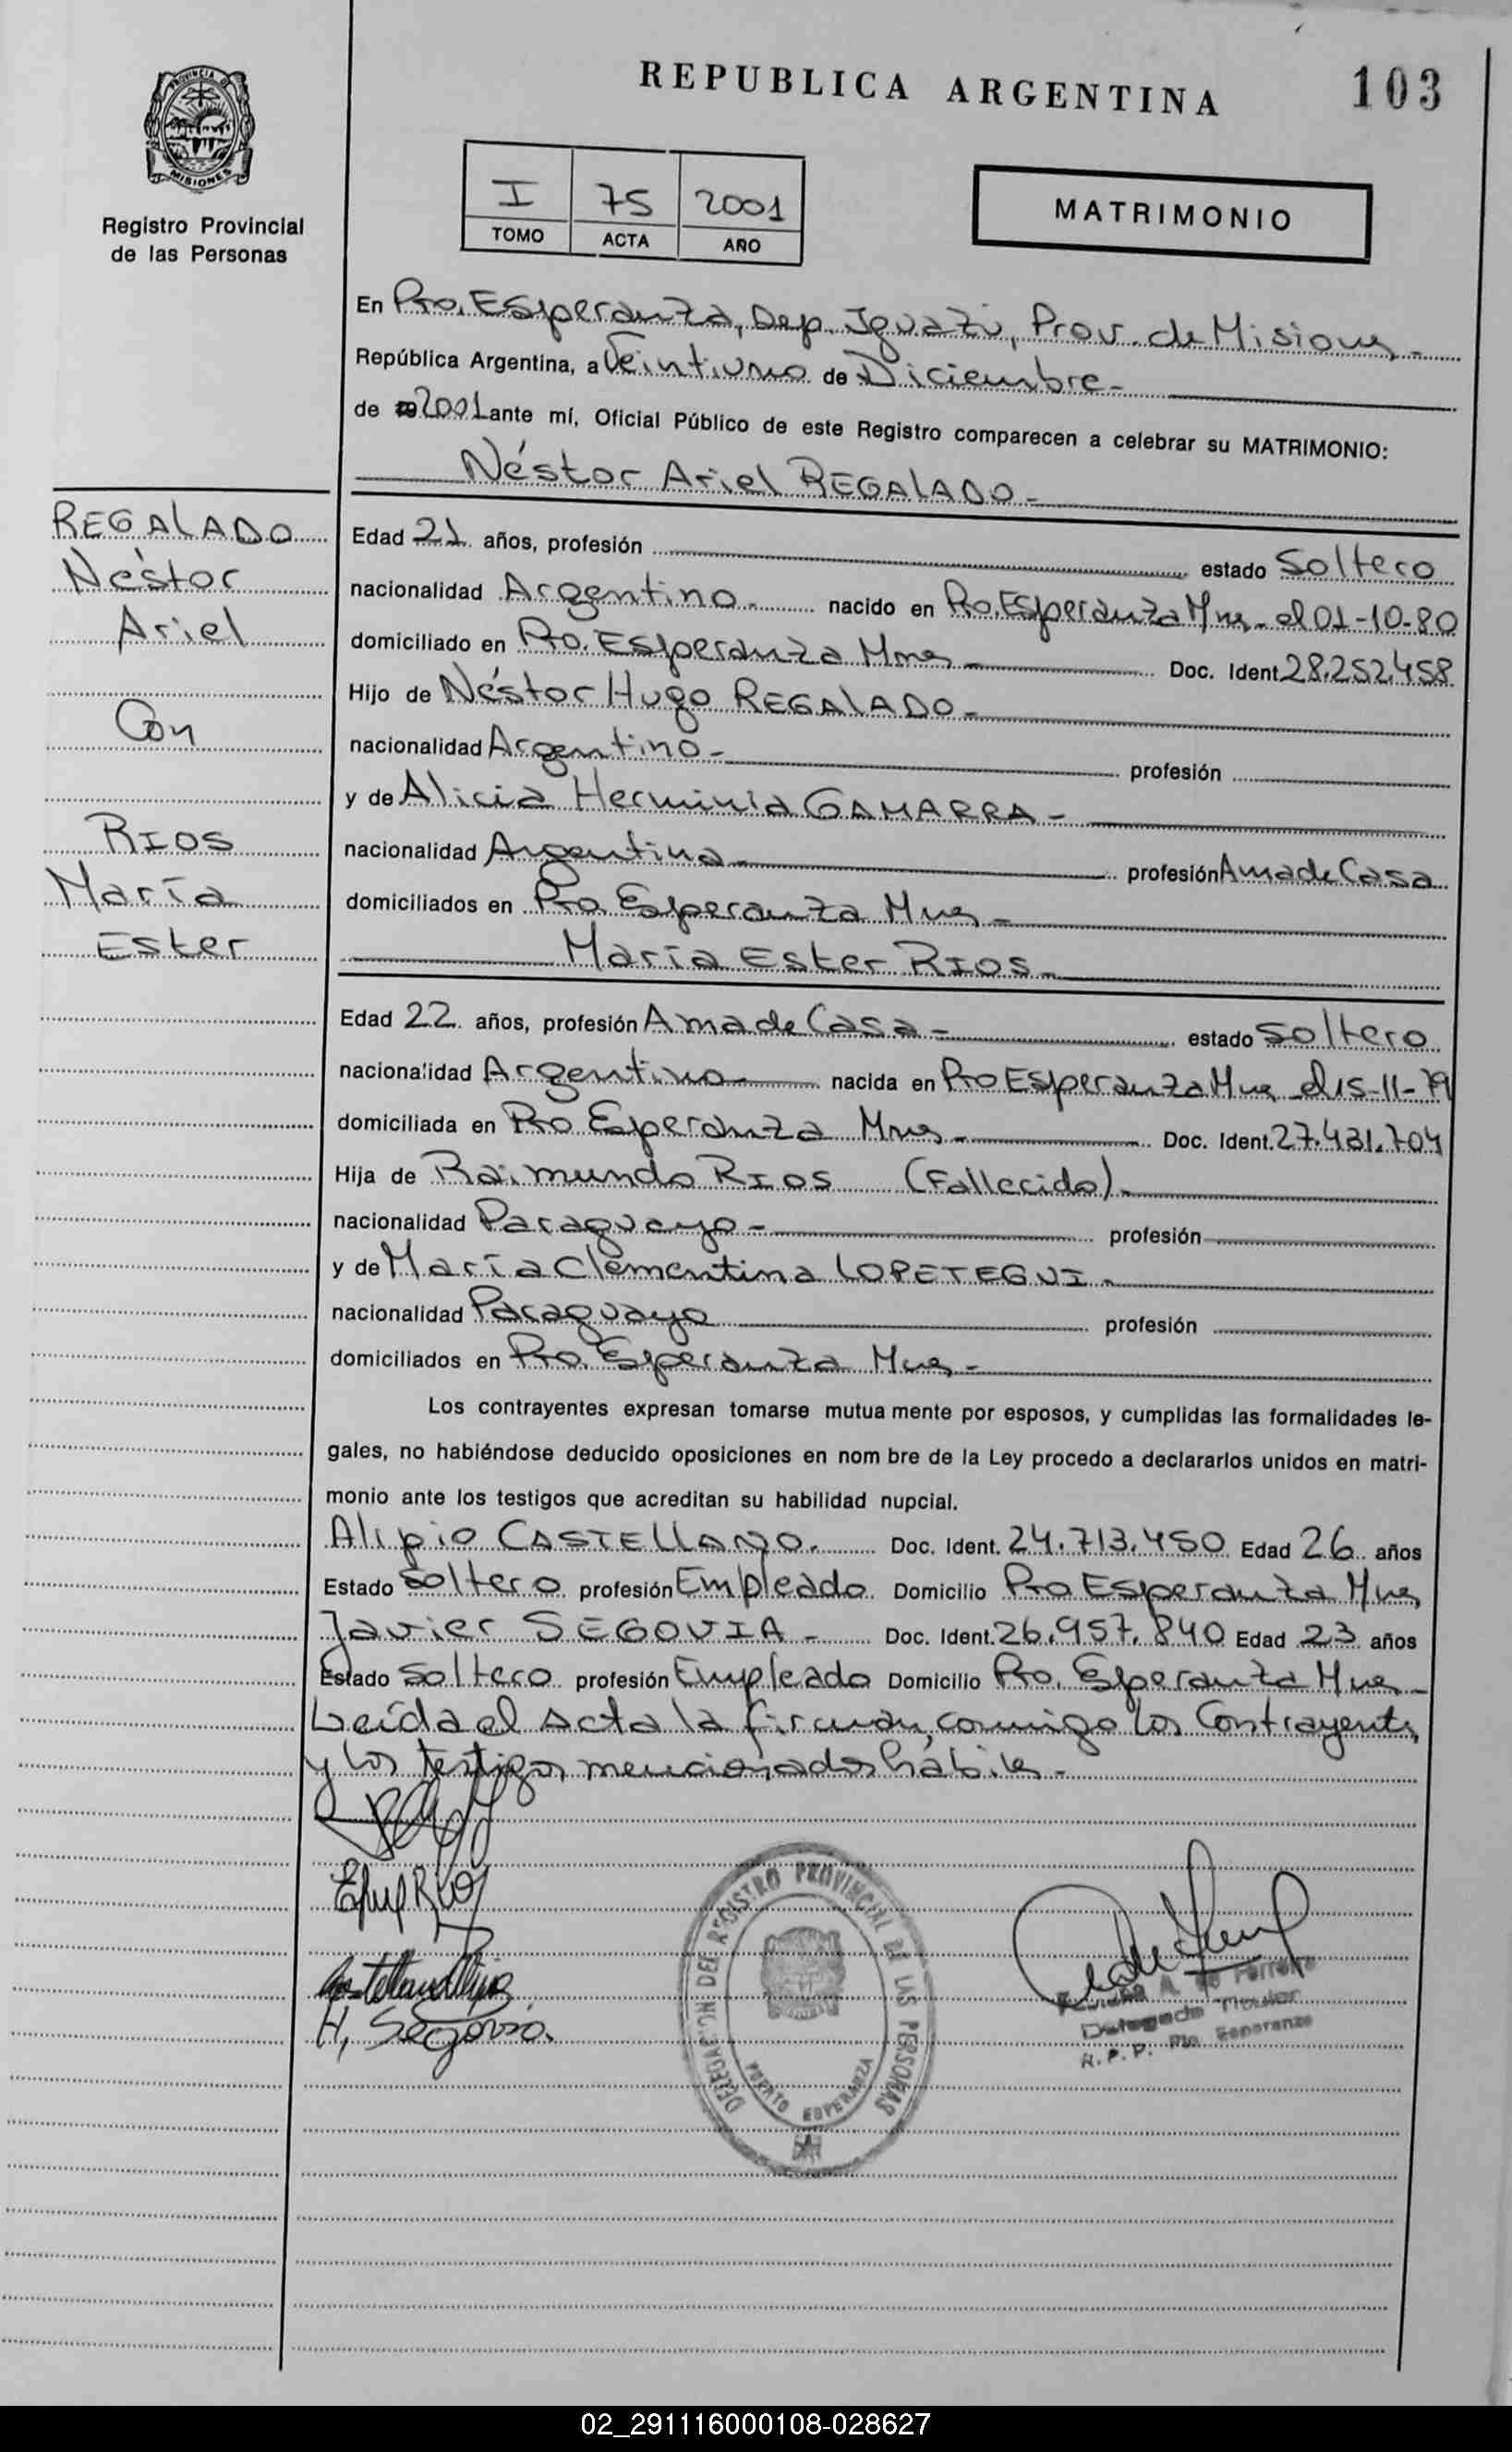 REPUBLICA ARGENTINA
103
PROVINCIA DE
MISIONES
Registro Provincial
de las Personas
I 75 2001
TOMO ACTA AÑO
MATRIMONIO
En Pto. Esperanza, Dep. Iguazú, Prov. de Misiones -
República Argentina, a Veintiuno de Diciembre -
de 2001 ante mí, Oficial Público de este Registro comparecen a celebrar su MATRIMONIO:
Néstor Ariel REGALADO -
REGALADO
Néstor
Ariel
Con
RIOS
María
Ester
Edad 21 años, profesión estado Soltero
nacionalidad Argentino - nacido en Pto. Esperanza Mnes - el 01-10-80
domiciliado en Pto. Esperanza Mnes - Doc. Ident. 28.252.458
Hijo de Néstor Hugo REGALADO -
nacionalidad Argentino - profesión
y de Alicia Herminia GAMARRA -
nacionalidad Argentina - profesión Ama de Casa
domiciliados en Pto. Esperanza Mnes -
María Ester RIOS -
Edad 22 años, profesión Ama de Casa - estado Soltero
nacionalidad Argentino - nacida en Pto Esperanza Mnes el 15-11-79
domiciliada en Pto Esperanza Mnes - Doc. Ident. 27.431.704
Hija de Raimundo RIOS (Fallecido) -
nacionalidad Paraguayo - profesión
y de María Clementina LOPETEGUI -
nacionalidad Paraguayo profesión
domiciliados en Pto. Esperanza Mnes -
Los contrayentes expresan tomarse mutua mente por esposos, y cumplidas las formalidades le-
gales, no habiéndose deducido oposiciones en nom bre de la Ley procedo a declararlos unidos en matri-
monio ante los testigos que acreditan su habilidad nupcial.
Alipio CASTELLANO. Doc. Ident. 24.713.450 Edad 26 años
Estado Soltero profesión Empleado Domicilio Pto Esperanza Mnes
Javier SEGOVIA - Doc. Ident. 26.957.840 Edad 23 años
Estado Soltero profesión Empleado Domicilio Pto. Esperanza Mnes -
Leída el Acta la firman, conmigo los Contrayentes
y los testigos mencionados hábiles -
H, Segovia.
DELEGACION DEL REGISTRO PROVINCIAL DE LAS PERSONAS
PUERTO ESPERANZA
A. de Ferreira
Delegada Titular
R.P.P. Pto. Esperanza
02_291116000108-028627